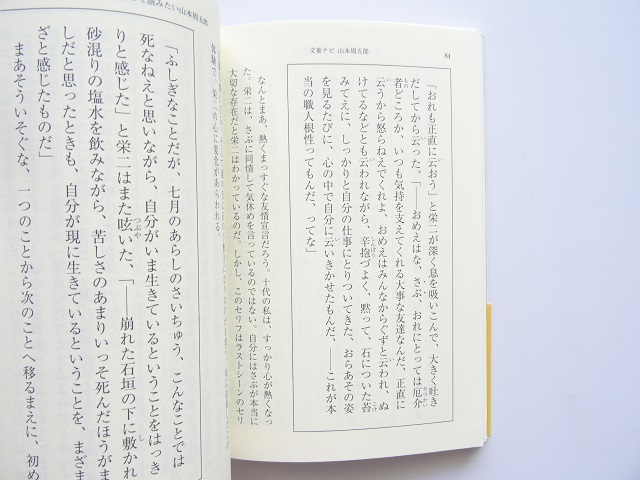 84
文豪ナビ 山本周五郎
「おれも正直に云おう」と栄二が深く息を吸いこんで、大きく吐き
だしてから云った、「――おめえはな、さぶ、おれにとっては厄介
者どころか、いつも気持を支えてくれる大事な友達なんだ、正直に
云うから怒らねえでくれよ、おめえはみんなからぐずと云われ、ぬ
けてるなどとも云われながら、辛抱づよく、黙って、石についた苔
みてえに、しっかりと自分の仕事にとりついてきた、おらあその姿
を見るたびに、心の中で自分に云いきかせたもんだ、――これが本
当の職人根性ってもんだ、ってな」
なんとまあ、熱くまっすぐな友情宣言だろう。十代の私は、すっかり心が熱くなっ
た。栄二は、さぶに同情して気休めを言っているのではない。自分にはさぶが本当に
大切な存在だと栄二はわかっているのだ。しかし、このセリフはラストシーンのセリ
読みたい山本周五郎
体験で、栄二の心に変化があらわれる。
「ふしぎなことだが、七月のあらしのさいちゅう、こんなことでは
死なねえと思いながら、自分がいま生きているということをはっき
りと感じた」と栄二はまた呟いた、「――崩れた石垣の下に敷かれ
砂混りの塩水を飲みながら、苦しさのあまりいっそ死んだほうがま
しだと思ったときも、自分が現に生きているということを、まざま
ざと感じたものだ」
まあそういそぐな、一つのことから次のことへ移るまえに、初め